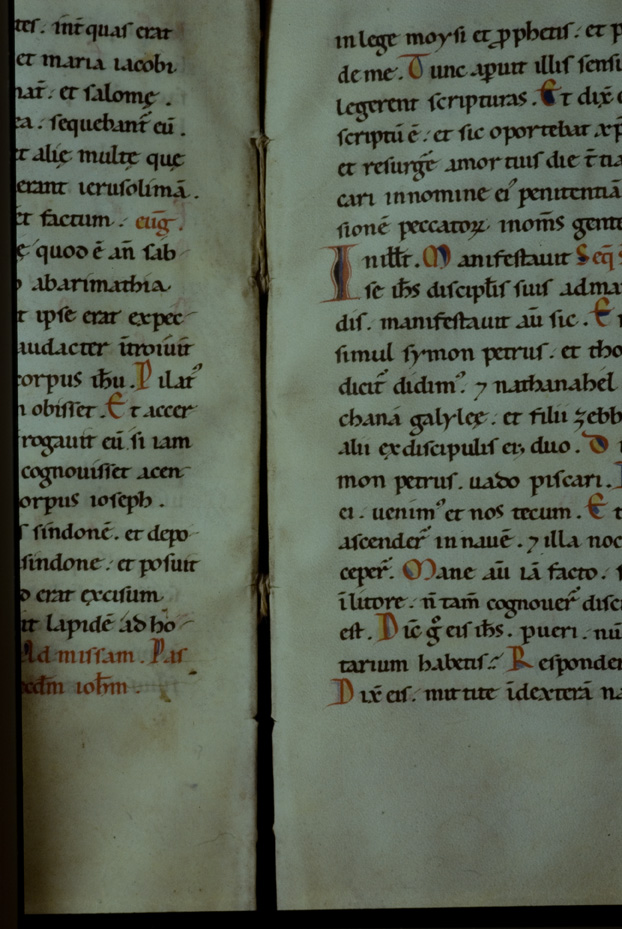 tes. int̄ quas erat
et maria iacobi
nat̄. et salomę.
ea. sequebant̄ eū.
et alię multę quę
erant ierusolimā.
et factum. euḡ.
ę quod ē an̄ sab
abarimathia
t ipse erat expec
audacter ītroiuit
corpus ih̄u. Pilatꝰ
obisset. Et accer
rogauit eū si iam
cognouisset acen
orpus ioseph.
sindonē. et depo
sindone. et posuit
erat excisum
it lapidē ad ho
Ad missam. Pas
sed̄m ioh̄m.
in lege moysi et ꝓphetis. et p
de me. Tunc aꝑuit illis sensu
legerent scripturas. Et dix̄ e
scriptū ē. et sic oportebat xp̄
et resurgē amortuis die t̄tia
cari innomine eiꝰ penitentiā
sionē peccatoꝝ inom̄s gente
In ill̄t. Manifestauit Seq̄
se ih̄s discipl̄is suis adma
dis. manifestauit aū sic. E
simul symon petrus. et tho
dicit̄ didimꝰ. ⁊ nathanahel
chana galylęę. et filii zebb
alii exdiscipulis eiꝰ duo. D
mon petrus. uado piscari.
ei. uenimꝰ et nos tecum. Et
ascender̄ in nauē. ⁊ illa noc
ceper̄. Mane aū iā facto. s
ī litore. n̄ tam̄ cognouer̄ disci
est. Dic̄ g̊ eis ih̄s. pueri. nū
tarium habetis. Responder
Dix̄ eis. mittite īdexterā na